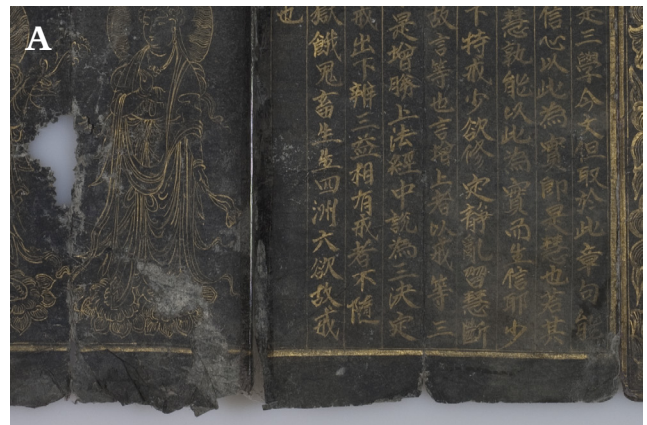 A
是三學今文但取於此章句能
信心以此為實即是慧也若其
慧孰能以此為實而生信耶少
下持戒少欲修定靜亂習慧斷
故言等也言增上者以戒等三
是增勝上法經中說為三決定
戒出下辨三益相有戒者不隨
獄餓鬼畜生生四洲六欲故戒
也